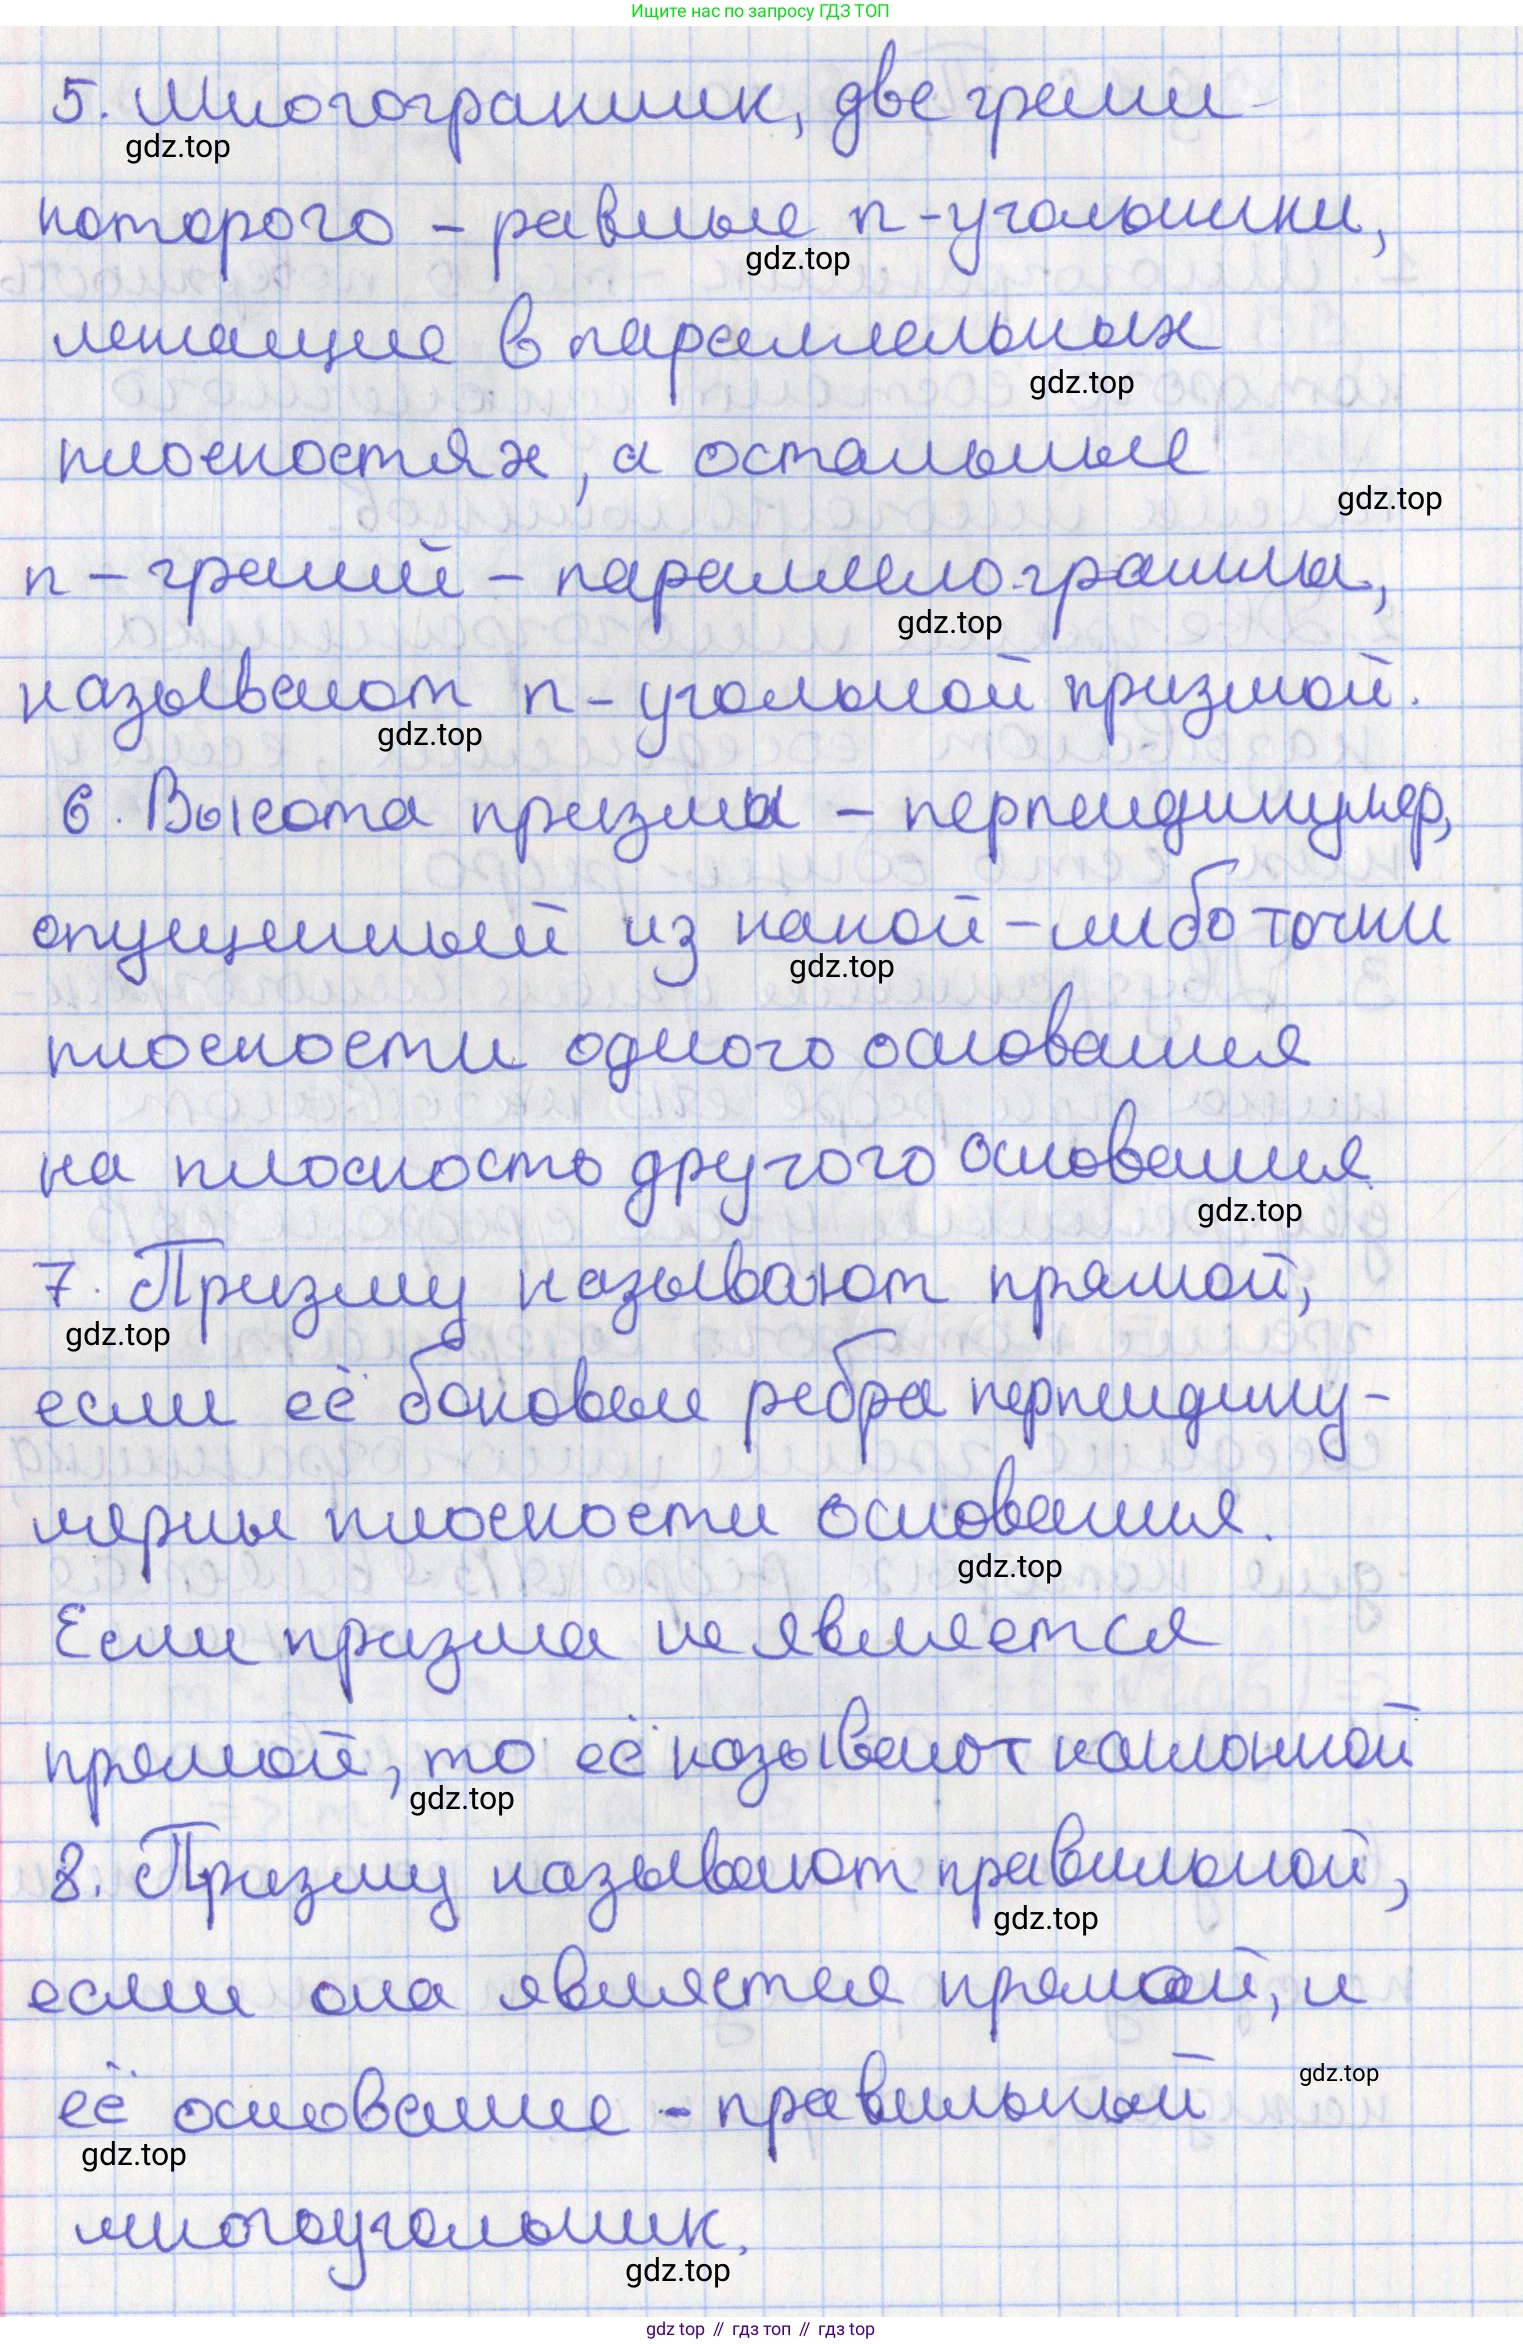 Ищите нас по запросу ГДЗ ТОП
5. Многогранник, две грани
gdz.top
которого - равные n-угольники,
gdz.top
лежащие в параллельных
gdz.top
плоскостях, а остальные
gdz.top
n - граней - параллелограммы,
gdz.top
называют n-угольной призмой.
gdz.top
6. Высота призмы - перпендикуляр,
опущенный из какой-либо точки
gdz.top
плоскости одного основания
на плоскость другого основания.
gdz.top
7. Призму называют прямой,
gdz.top
если её боковые ребра перпендику-
лярны плоскости основания.
gdz.top
Если призма не является
прямой, то её называют наклонной
gdz.top
8. Призму называют правильной,
gdz.top
если она является прямой, и
gdz.top
её основание - правильный
gdz.top
многоугольник.
gdz.top
gdz top // гдз топ // гдз top